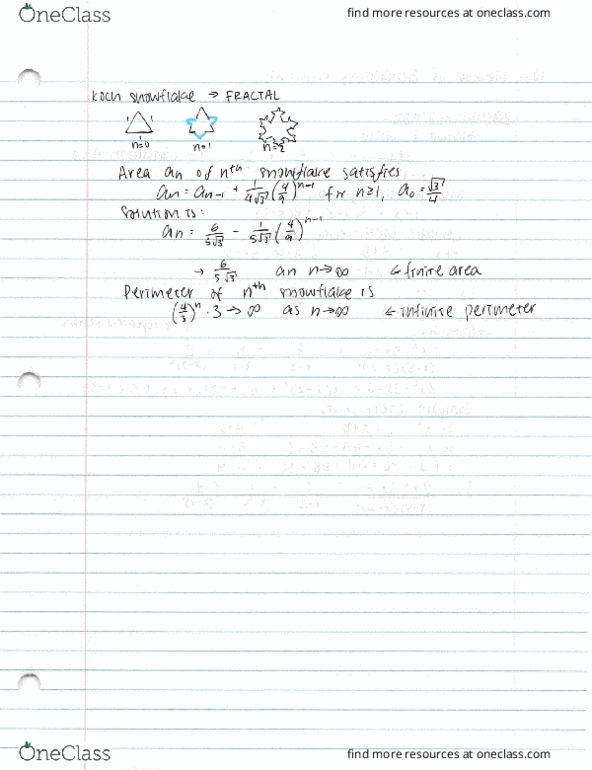 OneClass
find more resources at oneclass.com
Koch snowflake → FRACTAL
1 1 1
n=0 n=1 n=2
Area an of nth snowflake satisfies
an = an-1 + 1/4√3 (4/9)^n-1 for n≥1, a0 = √3/4
Solution is:
an = 6/5√3 - 1/5√3 (4/9)^n-1
→ 6/5√3 an n→∞ ← finite area
Perimeter of nth snowflake is
(4/3)^n · 3 → ∞ as n→∞ ← infinite perimeter
OneClass
find more resources at oneclass.com